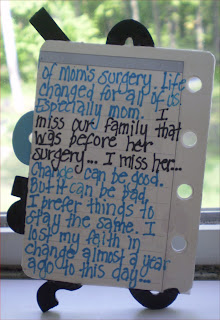 of mom's surgery life
changed for all of us.
Especially mom. I
miss our family that
was before her
surgery... I miss her...
change can be good.
But it can be bad,
I prefer things to
stay the same. I
lost my faith in
change almost a year
ago to this day...